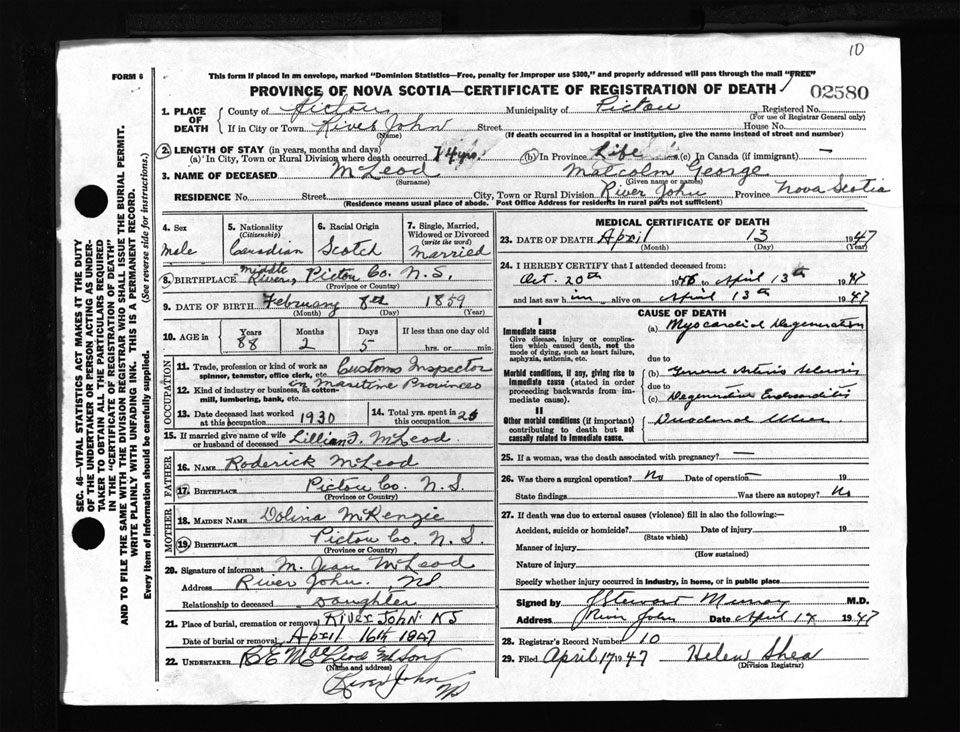 10
FORM 6
This form if placed in an envelope, marked "Dominion Statistics—Free, penalty for improper use $300," and properly addressed will pass through the mail "FREE"
PROVINCE OF NOVA SCOTIA—CERTIFICATE OF REGISTRATION OF DEATH
02580
1. PLACE OF DEATH
County of Pictou Municipality of Pictou Registered No.
(For use of Registrar General only)
If in City or Town River John Street House No.
(Name) (If death occurred in a hospital or institution, give the name instead of street and number)
2. LENGTH OF STAY (in years, months and days)
(a) In City, Town or Rural Division where death occurred 14 yrs. (b) In Province Life (c) In Canada (if immigrant) —
3. NAME OF DECEASED McLeod Malcolm George
(Surname) (Given name or names)
RESIDENCE No. Street City, Town or Rural Division River John Province Nova Scotia
(Residence means usual place of abode. Post Office Address for residents in rural parts not sufficient)
4. Sex
Male
5. Nationality (Citizenship)
Canadian
6. Racial Origin
Scotch
7. Single, Married, Widowed or Divorced (write the word)
Married
8. BIRTHPLACE Middle River, Pictou Co. N.S.
(Province or Country)
9. DATE OF BIRTH February 8th 1859
(Month) (Day) (Year)
10. AGE in
Years 88
Months 2
Days 5
If less than one day old
hrs. or min.
OCCUPATION
11. Trade, profession or kind of work as spinner, teamster, office clerk, etc. Customs Inspector
12. Kind of industry or business, as cotton-mill, lumbering, bank, etc. in Maritime Provinces
13. Date deceased last worked at this occupation 1930
14. Total yrs. spent in this occupation 26
15. If married give name of wife or husband of deceased Lillian J. McLeod
FATHER
16. NAME Roderick McLeod
17. BIRTHPLACE Pictou Co. N.S.
(Province or Country)
MOTHER
18. MAIDEN NAME Dolina McKenzie
19. BIRTHPLACE Pictou Co. N.S.
(Province or Country)
20. Signature of informant M. Jean McLeod
Address River John. NS
Relationship to deceased Daughter
21. Place of burial, cremation or removal River John. NS
Date of burial or removal April 16th 1947
22. UNDERTAKER
(Name and address)
River John NS
MEDICAL CERTIFICATE OF DEATH
23. DATE OF DEATH April 13 1947
(Month) (Day) (Year)
24. I HEREBY CERTIFY that I attended deceased from:
Oct. 20th 1946 to April 13th 1947
and last saw him alive on April 13th 1947
CAUSE OF DEATH
I
Immediate cause
Give disease, injury or complication which caused death, not the mode of dying, such as heart failure, asphyxia, asthenia, etc.
(a) Myocardial Degeneration
due to
Morbid conditions, if any, giving rise to immediate cause (stated in order proceeding backwards from immediate cause).
(b) General Arterio Sclerosis
due to
(c) Degenerative Endocarditis
II
Other morbid conditions (if important) contributing to death but not causally related to immediate cause.
Duodenal Ulcer
25. If a woman, was the death associated with pregnancy? —
26. Was there a surgical operation? No Date of operation — 19
State findings Was there an autopsy? No
27. If death was due to external causes (violence) fill in also the following:—
Accident, suicide or homicide? Date of injury 19
(State which)
Manner of injury
(How sustained)
Nature of injury
Specify whether injury occurred in industry, in home, or in public place
Signed by J Stewart Murray M.D.
Address River John Date April 14 1947
28. Registrar's Record Number 10
29. Filed April 17 1947 Helen Shea
(Division Registrar)
SEC. 46—VITAL STATISTICS ACT MAKES IT THE DUTY
OF THE UNDERTAKER OR PERSON ACTING AS UNDER-
TAKER TO OBTAIN ALL THE PARTICULARS REQUIRED
IN THE "CERTIFICATE OF REGISTRATION OF DEATH"
AND TO FILE THE SAME WITH THE DIVISION REGISTRAR WHO SHALL ISSUE THE BURIAL PERMIT.
WRITE PLAINLY WITH UNFADING INK. THIS IS A PERMANENT RECORD.
Every item of information should be carefully supplied. (See reverse side for instructions.)